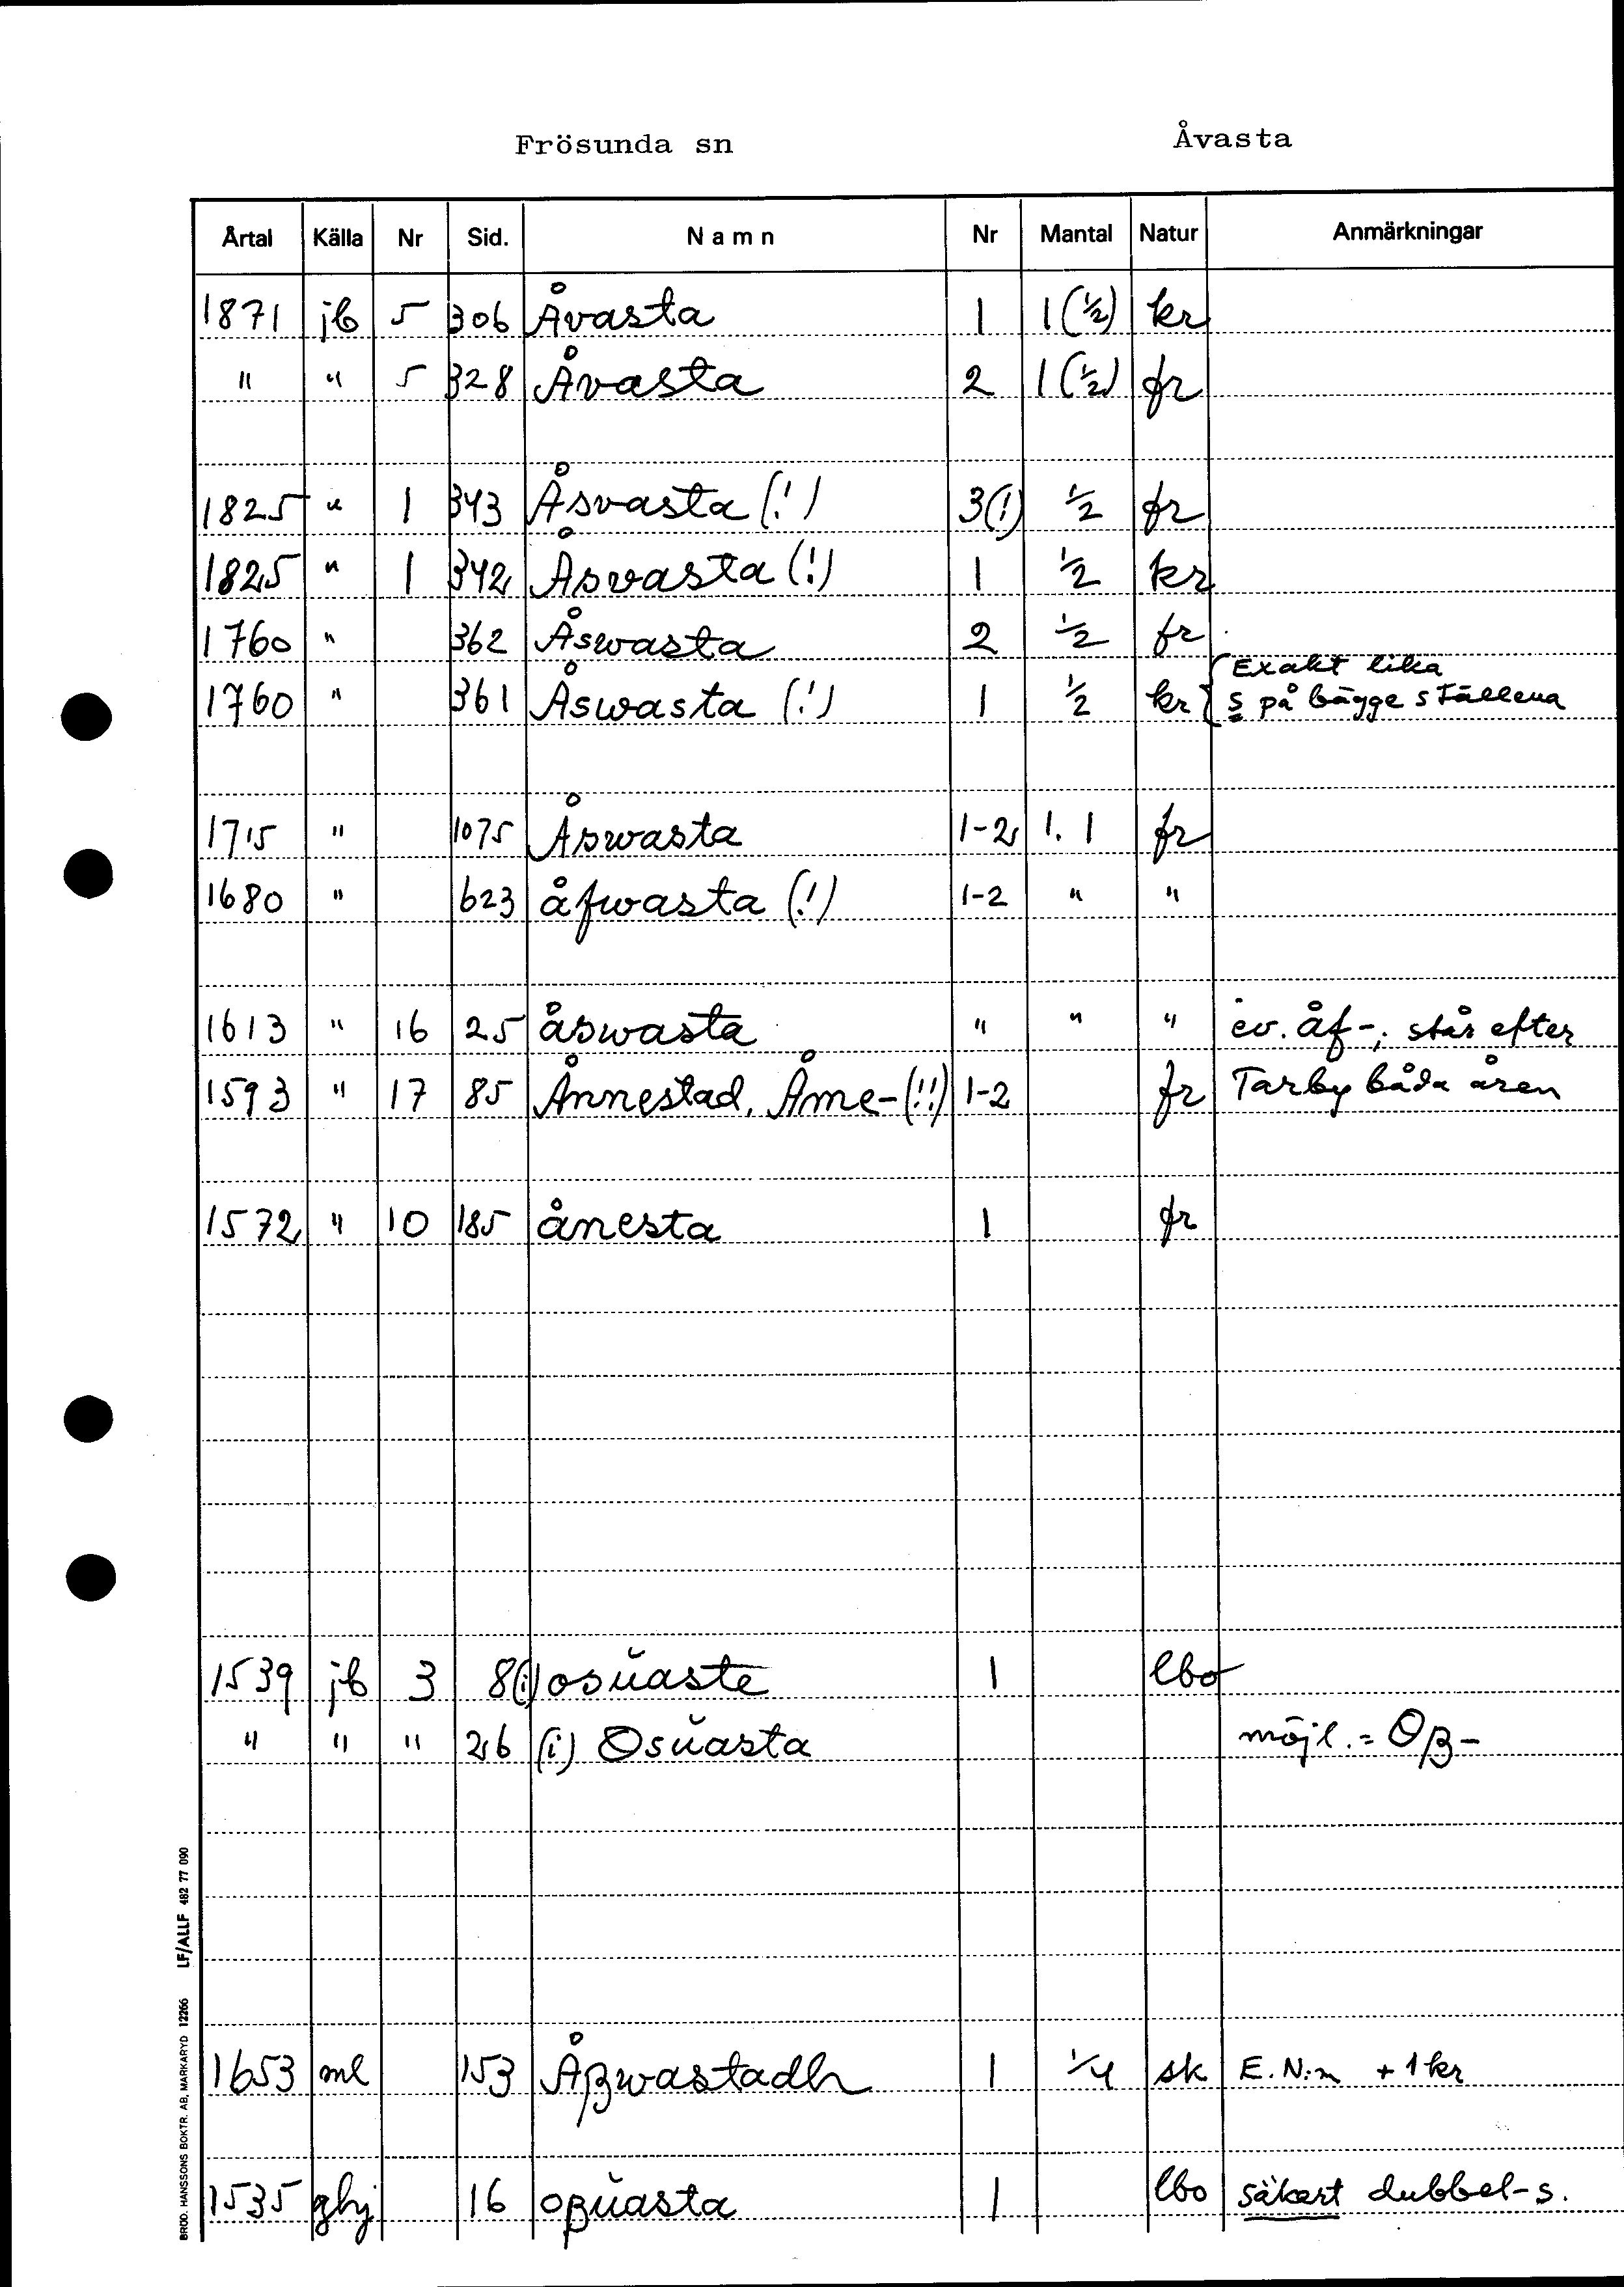 Frösunda sn Åvasta
Årtal Källa Nr Sid. Namn Nr Mantal Natur Anmärkningar
1871 jb 5 306 Åvasta 1 1 (½) kr
" " 5 328 Åvasta 2 1 (½) fr
1825 " 1 343 Åsvasta (!) 3(!) ½ fr
1825 " 1 342 Åsvasta (!) 1 ½ kr
1760 " 362 Åswasta 2 ½ fr
{ Exakt lika
1760 " 361 Åswasta (!) 1 ½ kr { s på bägge ställena
1715 " 1075 Åswasta 1-2 1. 1 fr
1680 " 623 åfwasta (!) 1-2 " "
1613 " 16 25 åswasta " " " ev. åf-; står efter
1593 " 17 85 Ånnestad, Åme-(!!) 1-2 fr Tarby båda åren
1572 " 10 185 ånesta 1 fr
1539 jb 3 8 (i) osŭaste 1 lbo
" " " 26 (i) Osŭasta möjl. = Oß-
1653 ml 153 Åßwastadh 1 ¼ sk E. N:m + 1 kr
1535 ghj 16 oßŭasta 1 lbo säkert dubbel-s.
BRÖD. HANSSONS BOKTR. AB, MARKARYD 12266 LF/ALLF 482 77 090